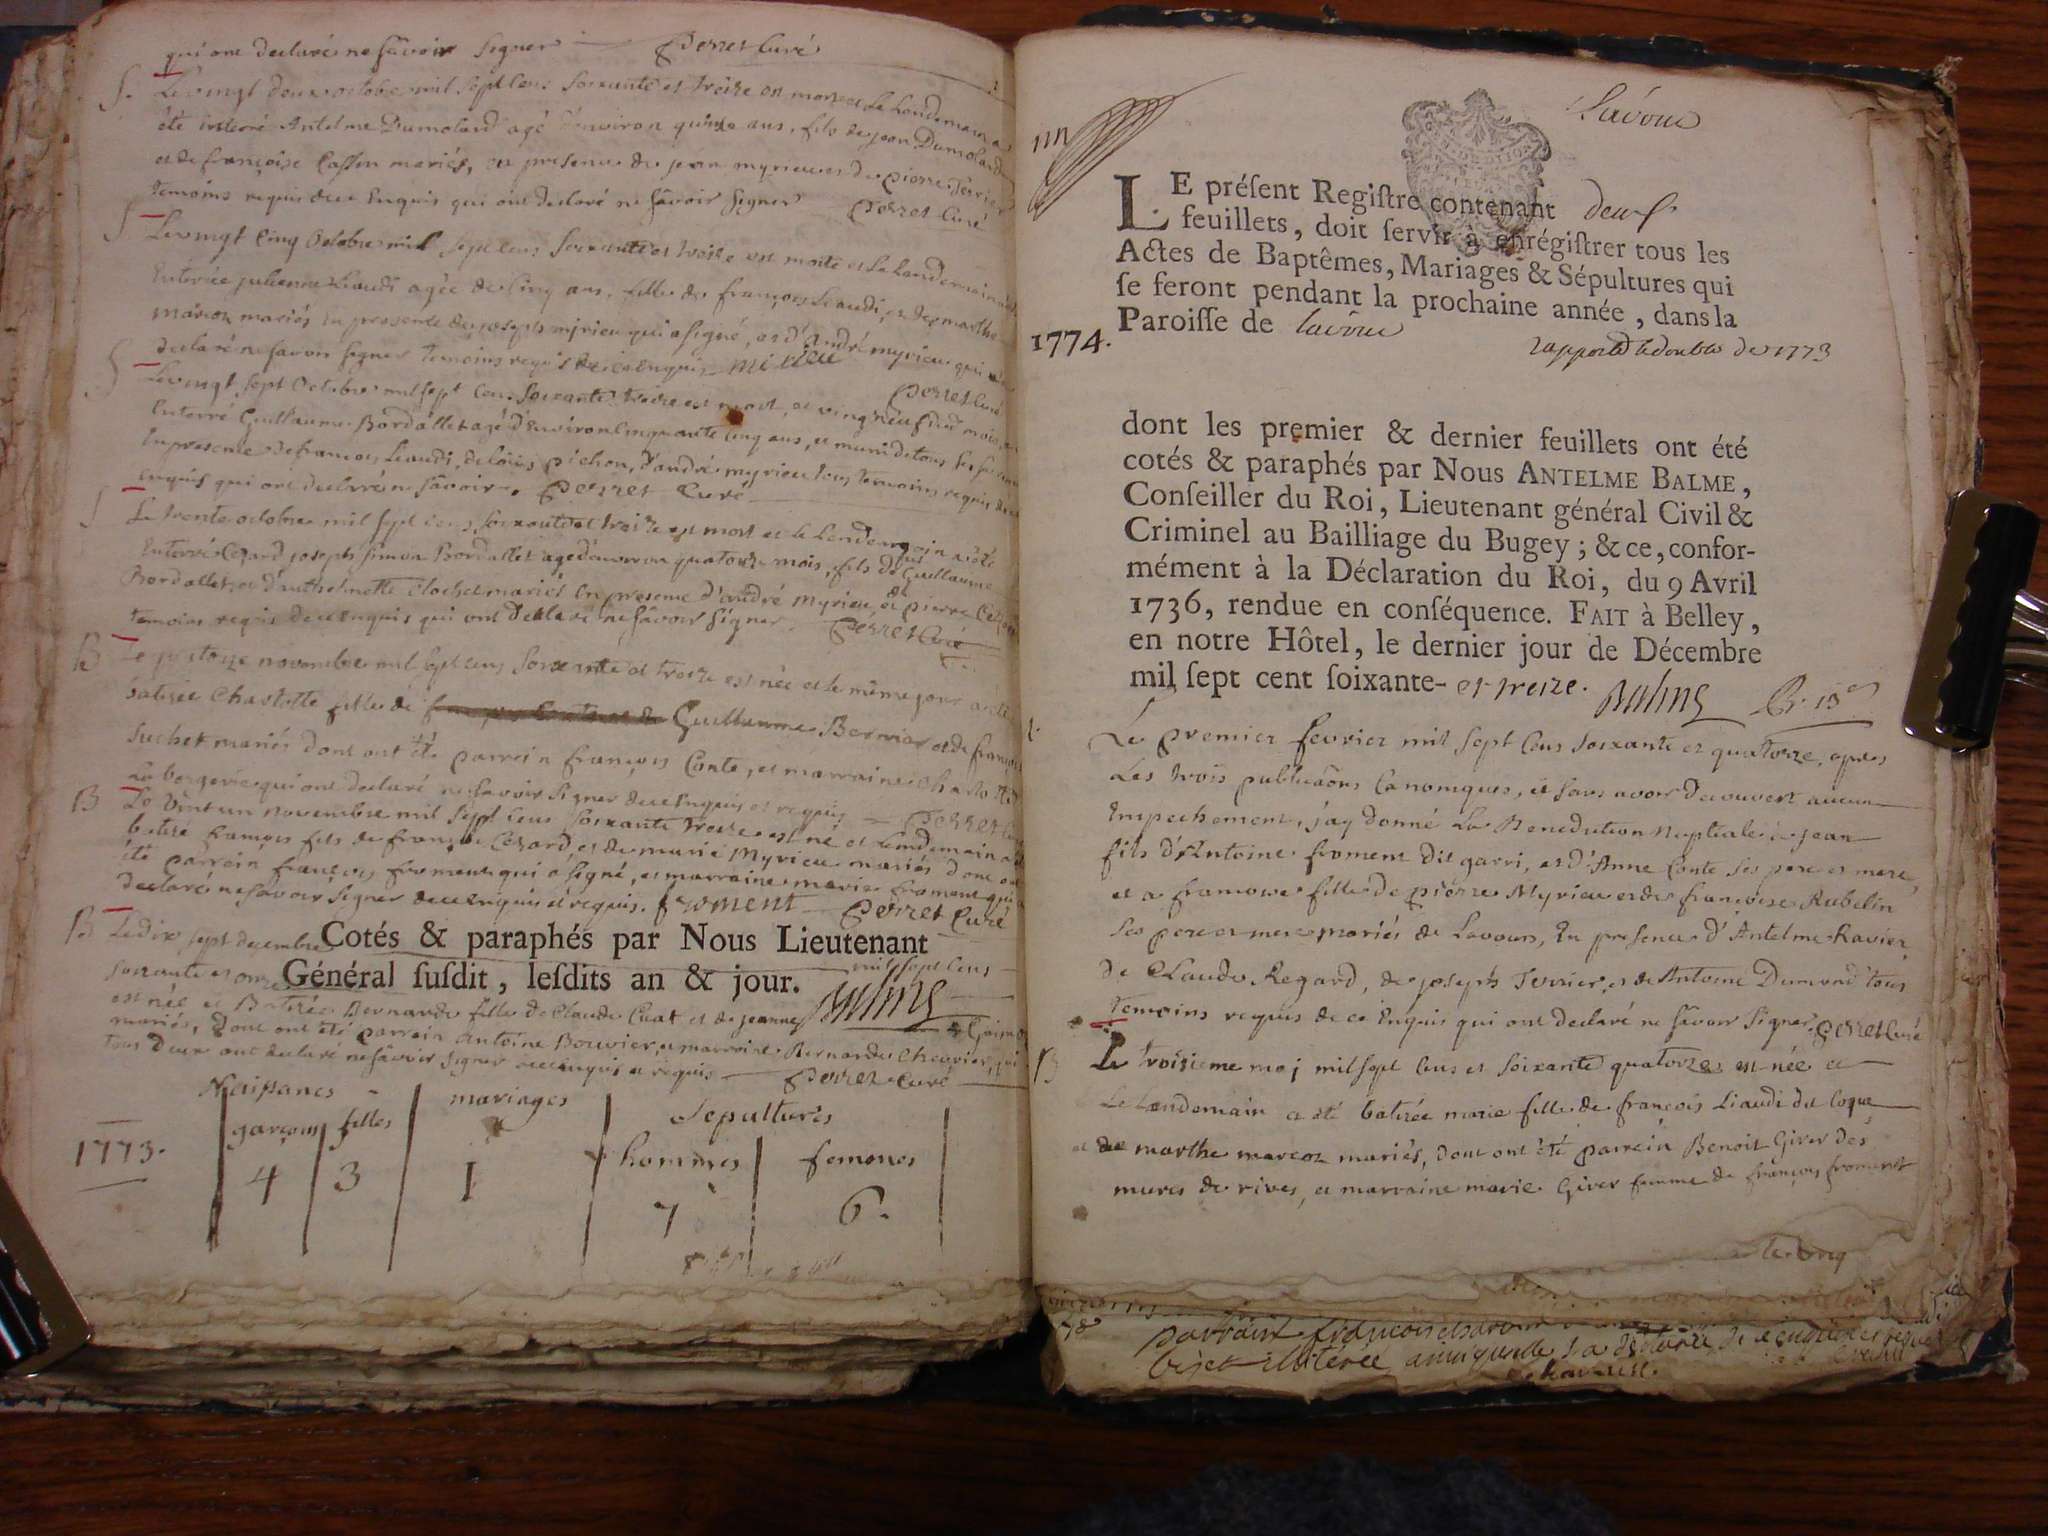 qui ont declaré ne sávoir signer Perret Curé
S. Le vingt deux octobre mil sept cens soixante et treize est mort et le Lendemain a
été interré Antelme Dumolard agé d'environ quinze ans, fils de jean Dumolard
et de françoise Cassin mariés, en presence de jean myrieu et de pierre Terrier
temoins requis de ce Enquis qui ont declaré ne sávoir signer Perret Curé
S Le vingt Cinq Octobre mil sept cens soixante et treize est morte et Le Landemain
Enterrée julienne Liaudi agée de Cinq ans, fille de françois Liaudi, et de marthe
marcoz mariés en presence de joseph myrieu qui a signé, et d'André myrieu qui a
declaré ne savoir signer temoins requis de ce enquis mirieu
Perret Curé
S Le vingt sept Octobre mil sept cens soixante treize est mort, et vingt neuf du mois
Enterré Guillaume Bordallet agé d'Environ Cinquante Cinq ans, et muni de tous
En presence de françois Liaudi, de Loüis pichon, d'andré myrieu tous temoins requis
enquis qui ont declaré ne sávoir. Perret Curé
S Le trente octobre mil sept cens soixante et treize est mort et le Lendemain a été
Enterré Cezard joseph simon Bordallet agé d'environ quatorze mois, fils de Guillaume
Bordallet, et d'anthelmette Clochet mariés En presence d'andré Myrieu, et de pierre
temoins requis de ce enquis qui ont declaré ne sávoir signer. Perret Curé
B Le quatorze novembre mil sept cens soixante et treize est née et le même jour a été
batisée Charlotte fille de Guillaume Bernier et de
Suchet mariés dont ont été parrein françois Conte, et marraine Charlotte
La bergerie qui ont declaré ne savoir signer de ce enquis et requis Perret
B Le Vint un novembre mil sept cens soixante treize est né et lendemain a
batisé françois fils de françois Cezard et de marie Myrieu mariés dont ont
été parrein françois froment qui a signé, et marraine marie froment qui a
declaré ne savoir signer de ce enquis et requis. froment Perret Curé
B. Le dix sept decembre mil sept cens
Cotés & paraphés par Nous Lieutenant
Général susdit, lesdits an & jour. Balme
soixante et
est née et Batisée Bernarde fille de Claude Cuat et de jeanne
mariés, dont ont été parrein Antoine Bouvier, et marraine Bernarde Chevrier, qui
tous deux ont declaré ne sávoir signer de ce enquis et requis Perret Curé
Naissances mariages Sepultures
garçons filles hommes femmes
1773. 4 3 1 7 6.
Lavour
LE présent Registre contenant deux
feuillets, doit servir à enrégistrer tous les
Actes de Baptêmes, Mariages & Sépultures qui
se feront pendant la prochaine année, dans la
Paroisse de Lavour
1774. rapporté le double de 1773
dont les premier & dernier feuillets ont été
cotés & paraphés par Nous ANTELME BALME,
Conseiller du Roi, Lieutenant général Civil &
Criminel au Bailliage du Bugey; & ce, confor-
mément à la Déclaration du Roi, du 9 Avril
1736, rendue en conséquence. FAIT à Belley,
en notre Hôtel, le dernier jour de Décembre
mil sept cent soixante- et treize. Balme
Le premier fevrier mil sept Cens soixante et quatorze, apres
Les trois publicaõns Canoniques, et sans avoir decouvert aucun
Empechement, j'ay donné La Benediction Nuptiale à jean
fils d'Antoine froment dit garri, et d'Anne Conte ses pere et mere,
et a francoise fille de pierre Myrieu et de françoise Rubelin
ses pere et mere mariés de Lavours, En presence d'Antelme Ravier
de Claude Regard, de joseph Terrier, et de Antoine Dumond tous
temoins requis de ce Enquis qui ont declaré ne sávoir signer. Perret Curé
B Le troisieme maj mil sept Cens et soixante quatorze est née et
Le Landemain a été batisée marie fille de francois Liaudi dit Coque
et de marthe marcoz mariés, dont ont été parrein Benoit Girer des
mures de rives, et marraine marie Girer femme de françois froment
78
parrain françois
illiterée